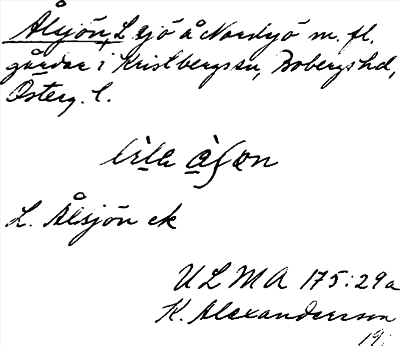 Ålsjön, L sjö å Nordsjö m. fl.
gårdar i Kristbergs sn, Bobergs hd,
Österg. l.
L. Ålsjön ek
ULMA 175:29a
K. Alexanderson
19